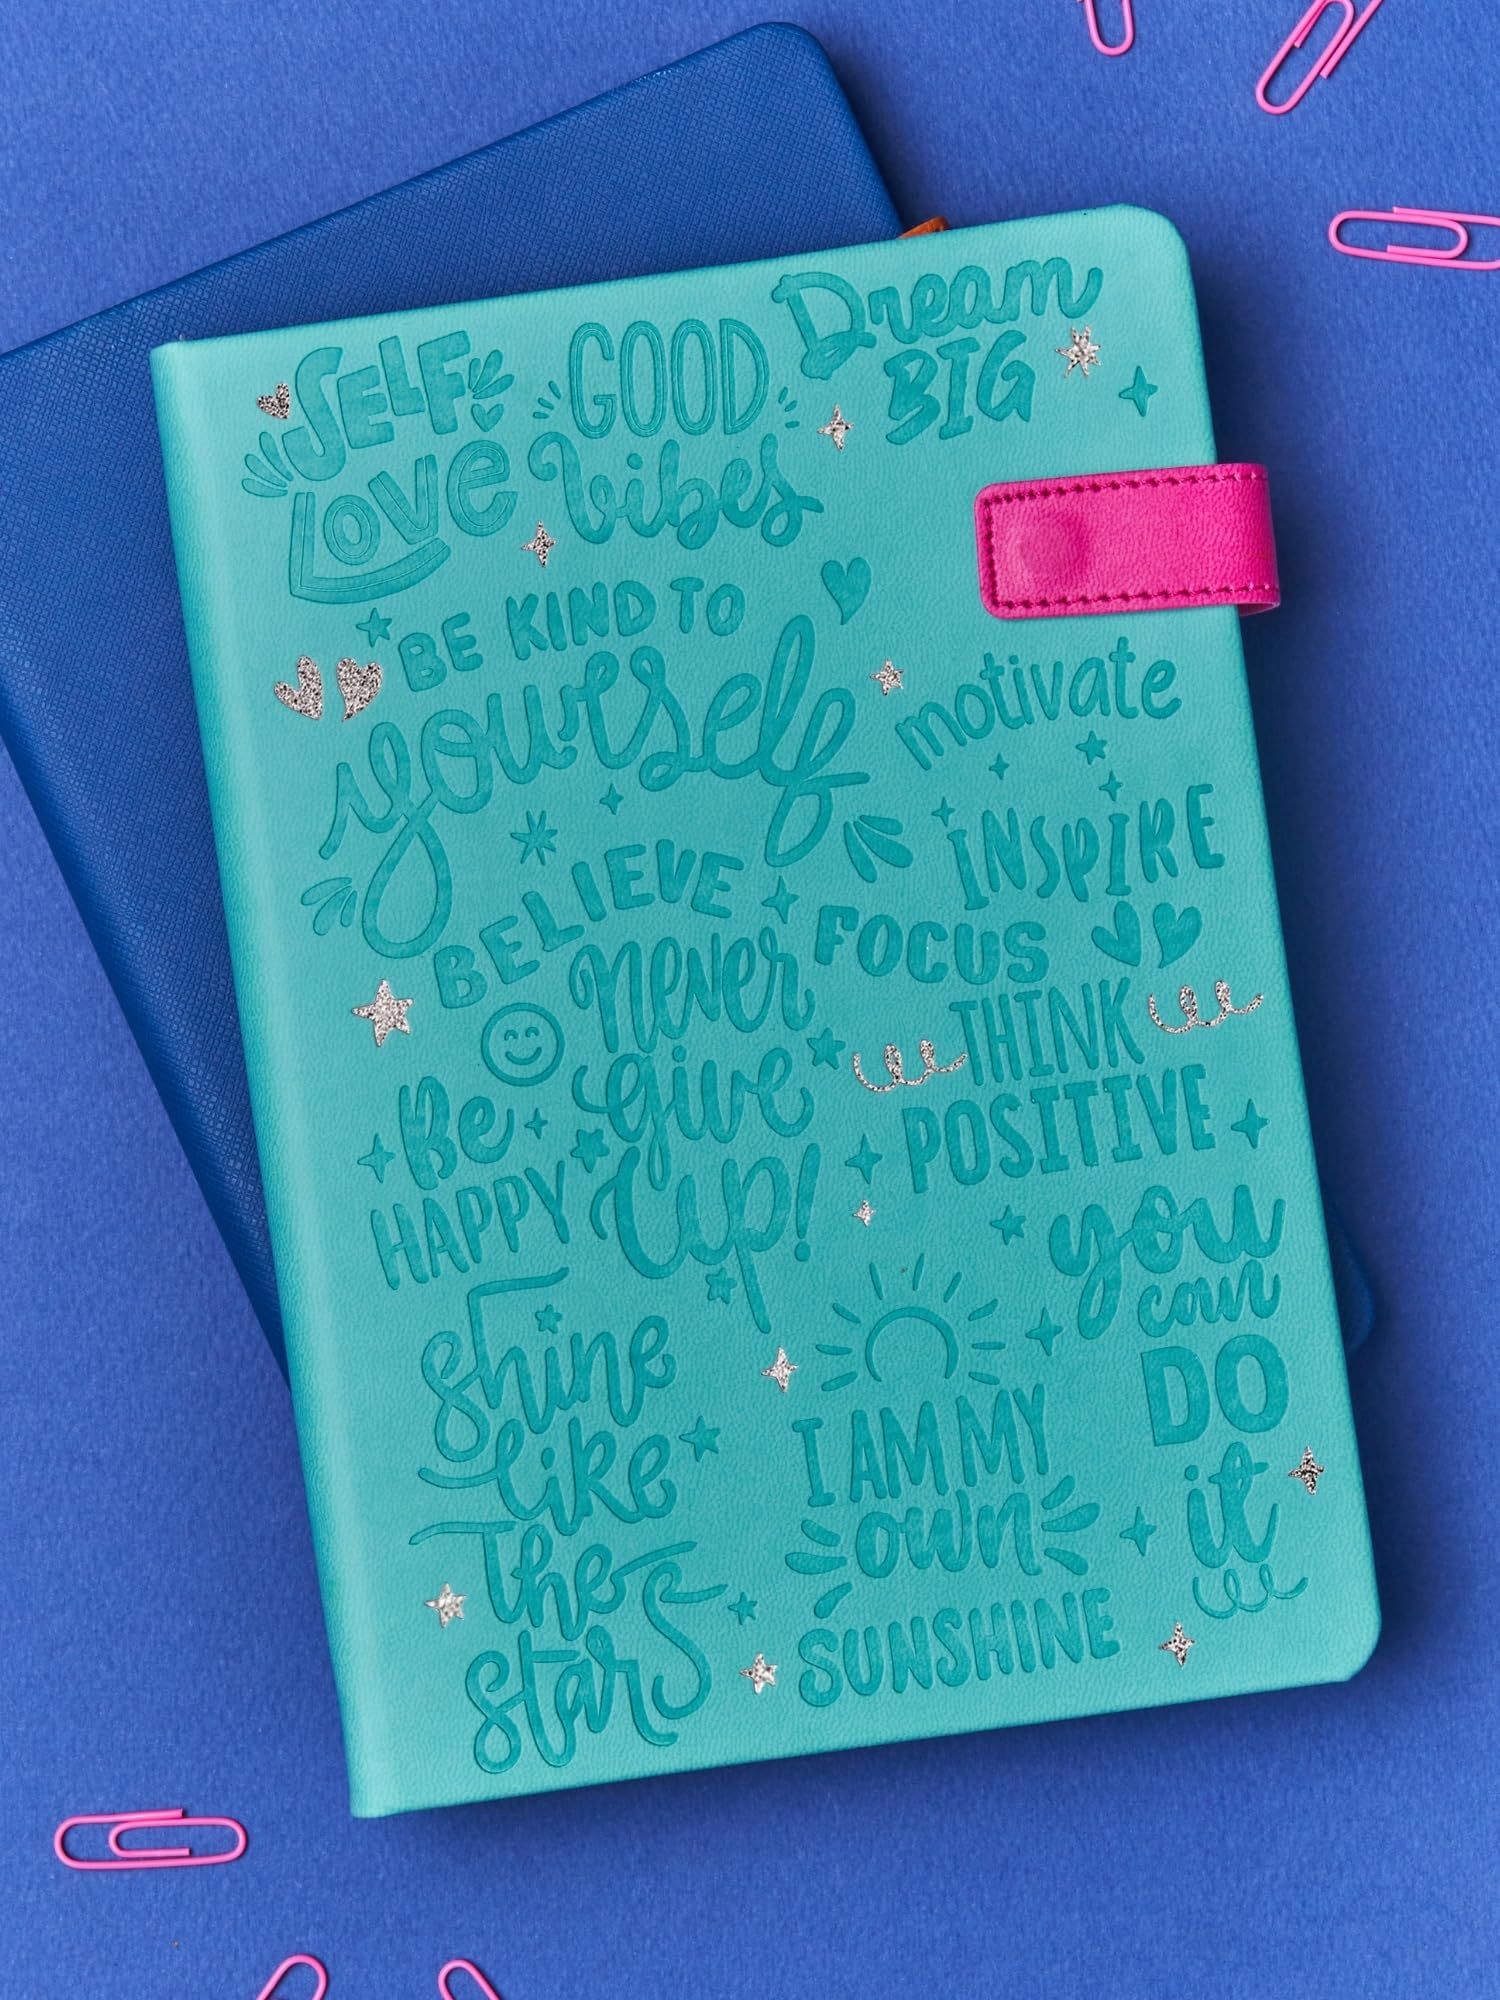 SELF
Love
GOOD
vibes
Dream
BIG
BE KIND TO
yourself
motivate
INSPIRE
BELIEVE
FOCUS
never
give
up!
THINK
POSITIVE
Be
HAPPY
you
can
DO
it
shine
like
the
stars
I AM MY
own
SUNSHINE